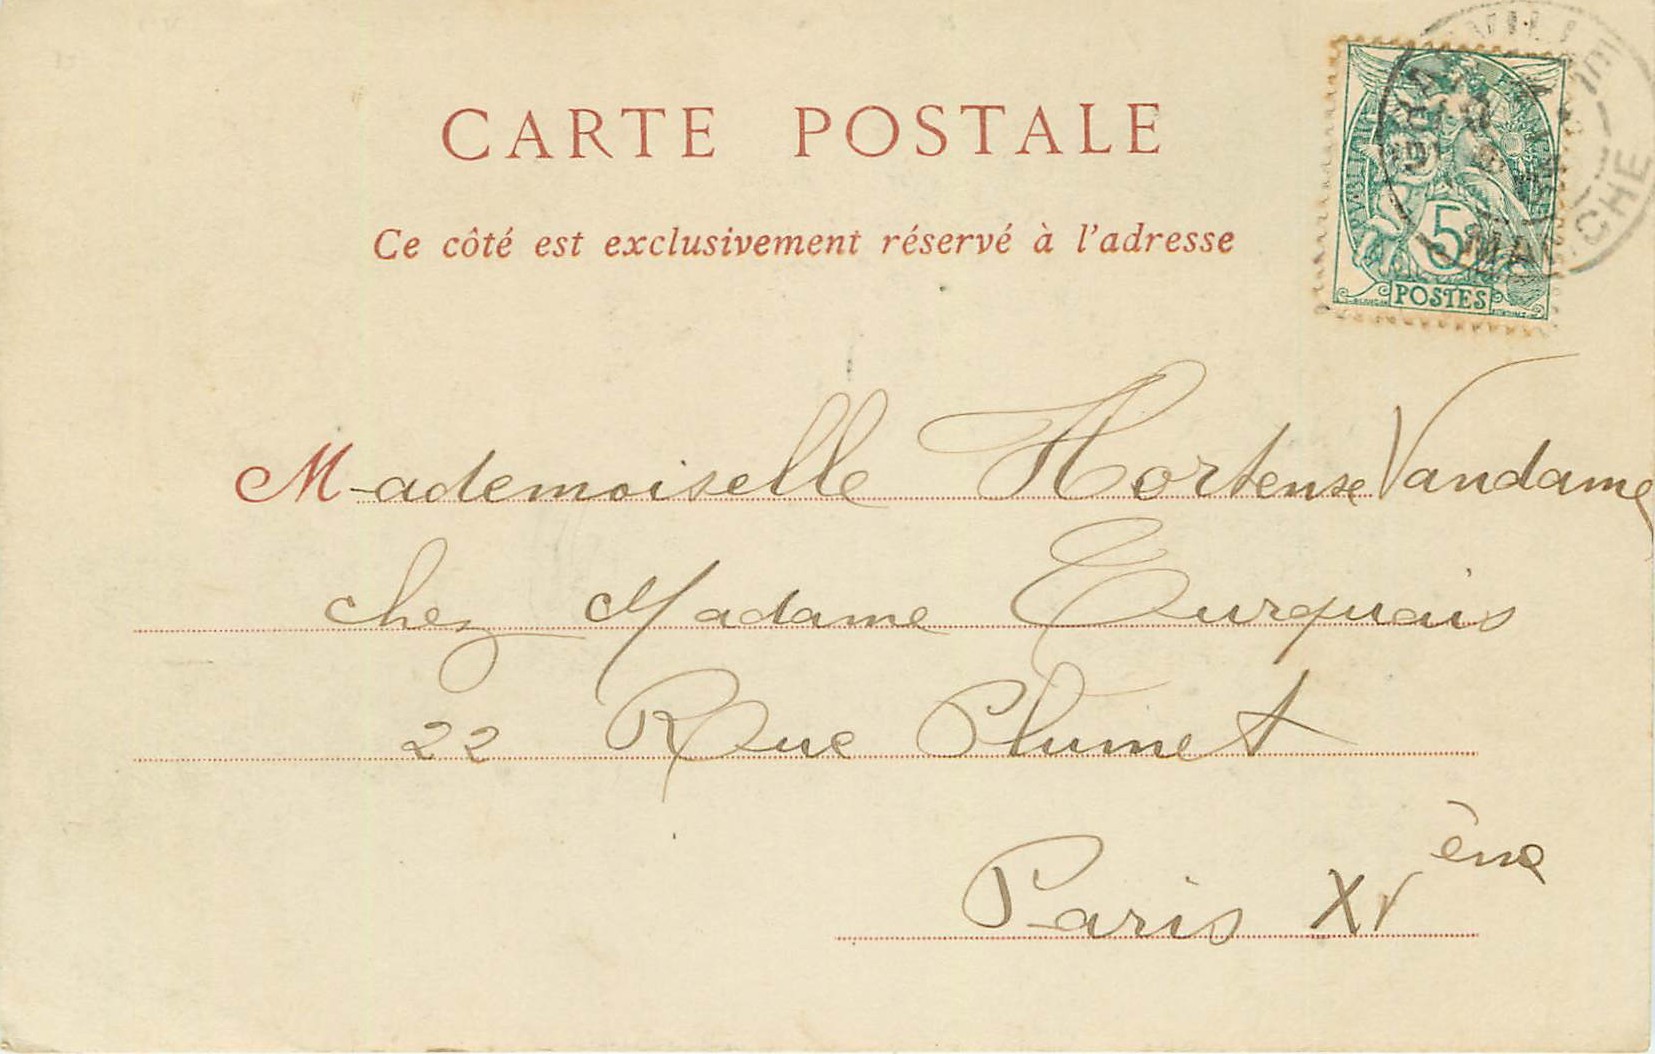 CARTE POSTALE
Ce côté est exclusivement réservé à l'adresse
5
POSTES
MANCHE
Mademoiselle Hortense Vandame
chez Madame Turquais
22 Rue Plumet
Paris XV ème